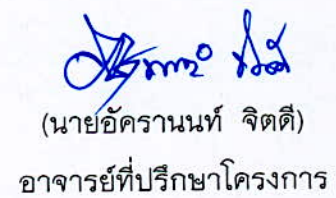 (นายอัครานนท์ จิตดี)
อาจารย์ที่ปรึกษาโครงการ